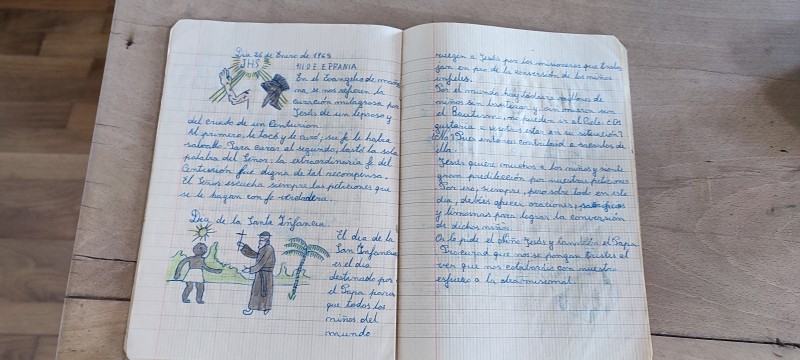 Dia 26 de Enero de 1963
JHS
III D. E. EPFANIA
En el Evangelio de maña
na, se nos refieren la
curación milagrosa por
Jesús de un leproso y
del criado de un Centurión.
Al primero, le tocó y le curó; su fe le había
salvado. Para curar al segundo, bastó la sola
palabra del Señor: la extraordinaria fe del
Centurión fue digna de tal recompensa.
El Señor escucha siempre las peticiones que
se le hagan con fe verdadera.
Dia de la Santa Infancia
El dia de la
San Infancia
es el dia
destinado por
el Papa para
que todos los
niños del
mundo
rueguen a Jesús por los misioneros que traba
jan en pro de la conversión de los niños
infieles.
Por el mundo hay todavía millones de
niños sin bautizar y sin
el Bautismo no pueden ir al Cielo. ¿Os
gustaria a vosotros estar en su situación?
Pues entonces contribuid a sacarlos de
ella.
Jesús quiere mucho a los niños y siente
gran predilección por vuestras peticiones
Por eso, siempre, pero sobre todo en este
dia, debéis ofrecer oraciones,
y limosnas para lograr la conversión
de dichos niños.
Os lo pide el Niño Jesús y también el Papa.
Procurad que no se pongan tristes al
ver que nos colaboráis con vuestro
esfuerzo a la obra misional.